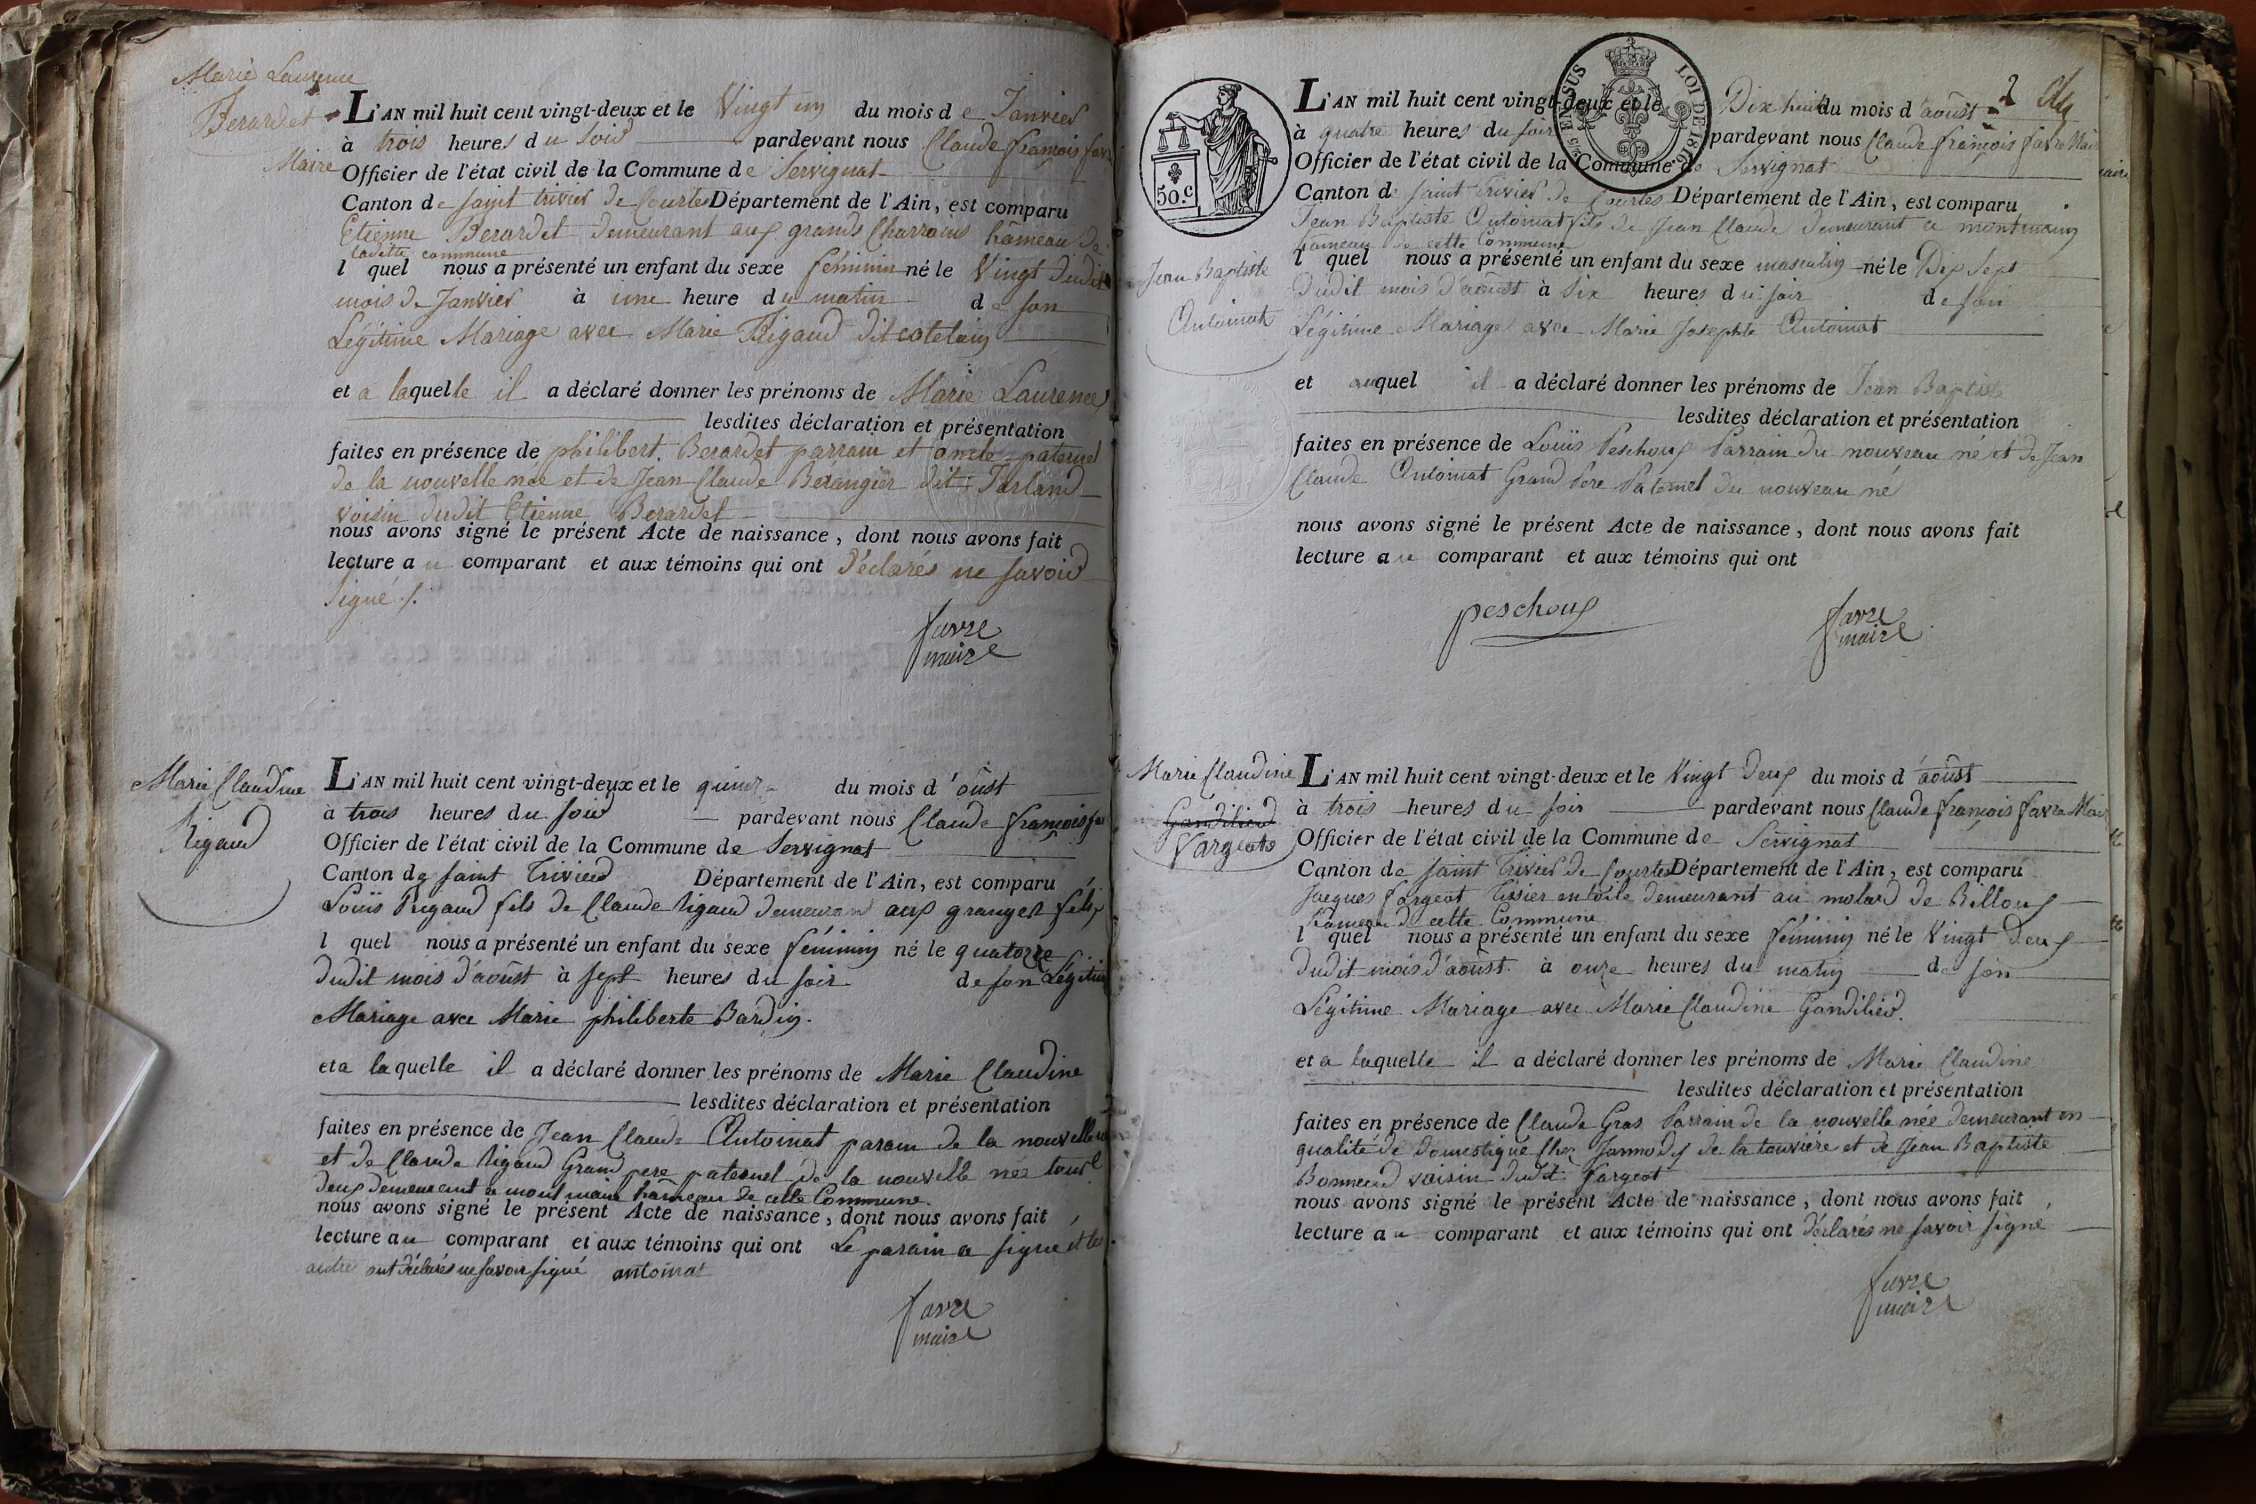 Marie Laurence
Berardet
L'AN mil huit cent vingt-deux et le Vingt un du mois de Janvier
à trois heures du soir pardevant nous Claude françois favre
Maire Officier de l'état civil de la Commune de Servignat
Canton de saint trivier de Courtes Département de l'Ain, est comparu
Etienne Berardet demeurant aux grands Charrains hâmeau de
ladette commune
l quel nous a présenté un enfant du sexe féminin né le Vingt dudit
mois de Janvier à une heure du matin de son
Légitime Mariage avec Marie Rigaud dit catelain
et a laquelle il a déclaré donner les prénoms de Marie Laurence
lesdites déclaration et présentation
faites en présence de philibert Berardet parrain et oncle paternel
de la nouvelle née et de Jean Claude Bérangier dit Jarland
voisin dudit Etienne Berardet
nous avons signé le présent Acte de naissance, dont nous avons fait
lecture au comparant et aux témoins qui ont déclarés ne savoir
signé ./.
favre
maire
Marie Claudine
Rigaud
L'AN mil huit cent vingt-deux et le quinze du mois d'oûst
à trois heures du soir pardevant nous Claude françois fav
Officier de l'état civil de la Commune de Servignat
Canton de saint Trivier Département de l'Ain, est comparu
Louis Rigaud fils de Claude Rigaud demeurant aux granges
l quel nous a présenté un enfant du sexe féminin né le quatorze
dudit mois d'aoûst à sept heures du soir de son Légitime
Mariage avec Marie philiberte Bardin.
et a laquelle il a déclaré donner les prénoms de Marie Claudine
lesdites déclaration et présentation
faites en présence de Jean Claude Antoinat parain de la nouvelle
et de Claude Rigaud Grand pere paternel de la nouvelle née tous
deux demeurant a montmain hâmeau de cette Commune.
nous avons signé le présent Acte de naissance, dont nous avons fait
lecture au comparant et aux témoins qui ont Le parain a signé et les
autre ont déclarés ne savoir signé antoinat
favre
maire
50.c
5.ES EN SUS LOI DE 1816
2
Jean Baptiste
Antoinat
L'AN mil huit cent vingt-deux et le Dix huit du mois d'aoûst
à quatre heures du soir pardevant nous Claude françois favre Maire
Officier de l'état civil de la Commune de Servignat
Canton de saint Trivier de Courtes Département de l'Ain, est comparu
Jean Baptiste Antoinat fils de Jean Claude demeurant a montmain
hameau de cette Commune
l quel nous a présenté un enfant du sexe masculin né le Dix sept
dudit mois d'aoûst à six heures du soir de son
Légitime Mariage avec Marie Josephte Antoinat
et auquel il a déclaré donner les prénoms de Jean Baptiste
lesdites déclaration et présentation
faites en présence de Louis Peschoux Parrain du nouveau né et de Jean
Claude Antoinat Grand Pere Paternel du nouveau né
nous avons signé le présent Acte de naissance, dont nous avons fait
lecture au comparant et aux témoins qui ont
peschoux
favre
maire
Marie Claudine
Gandilied
Vargeot
L'AN mil huit cent vingt-deux et le Vingt deux du mois d'aoûst
à trois heures du soir pardevant nous Claude françois favre Mair
Officier de l'état civil de la Commune de Servignat
Canton de saint Trivier de Courtes Département de l'Ain, est comparu
Jacques fargeot Tissier en toile demeurant au molard de Billoux
hameau de cette Commune
l quel nous a présenté un enfant du sexe féminin né le Vingt Deux
dudit mois d'aoûst à onze heures du matin de son
Légitime Mariage avec Marie Claudine Gandilied.
et a laquelle il a déclaré donner les prénoms de Marie Claudine
lesdites déclaration et présentation
faites en présence de Claude Gras Parrain de la nouvelle née demeurant en
qualité de domestique chez Jarmodÿ de la touviere et de Jean Baptiste
Bonneau voisin dudit fargeot
nous avons signé le présent Acte de naissance, dont nous avons fait
lecture au comparant et aux témoins qui ont déclarés ne savoir signé
favre
maire